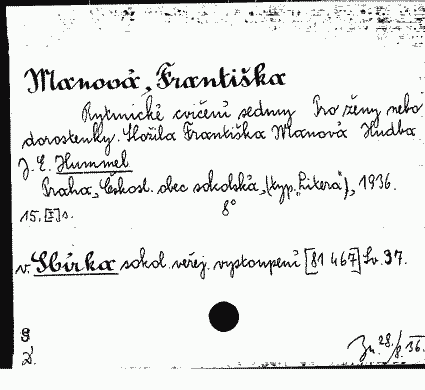 Manová, Františka
Rytmické cvičení sedmy Pro ženy nebo
dorostenky. Složila Františka Manová Hudba
J. E. Hummel
Praha, Českosl. obec sokolská, (typ. "Litera"), 1936.
15, [I] s. 8°
v. Sbírka sokol. veřej. vystoupení [81 467] Sv. 37.
28./8. 36.